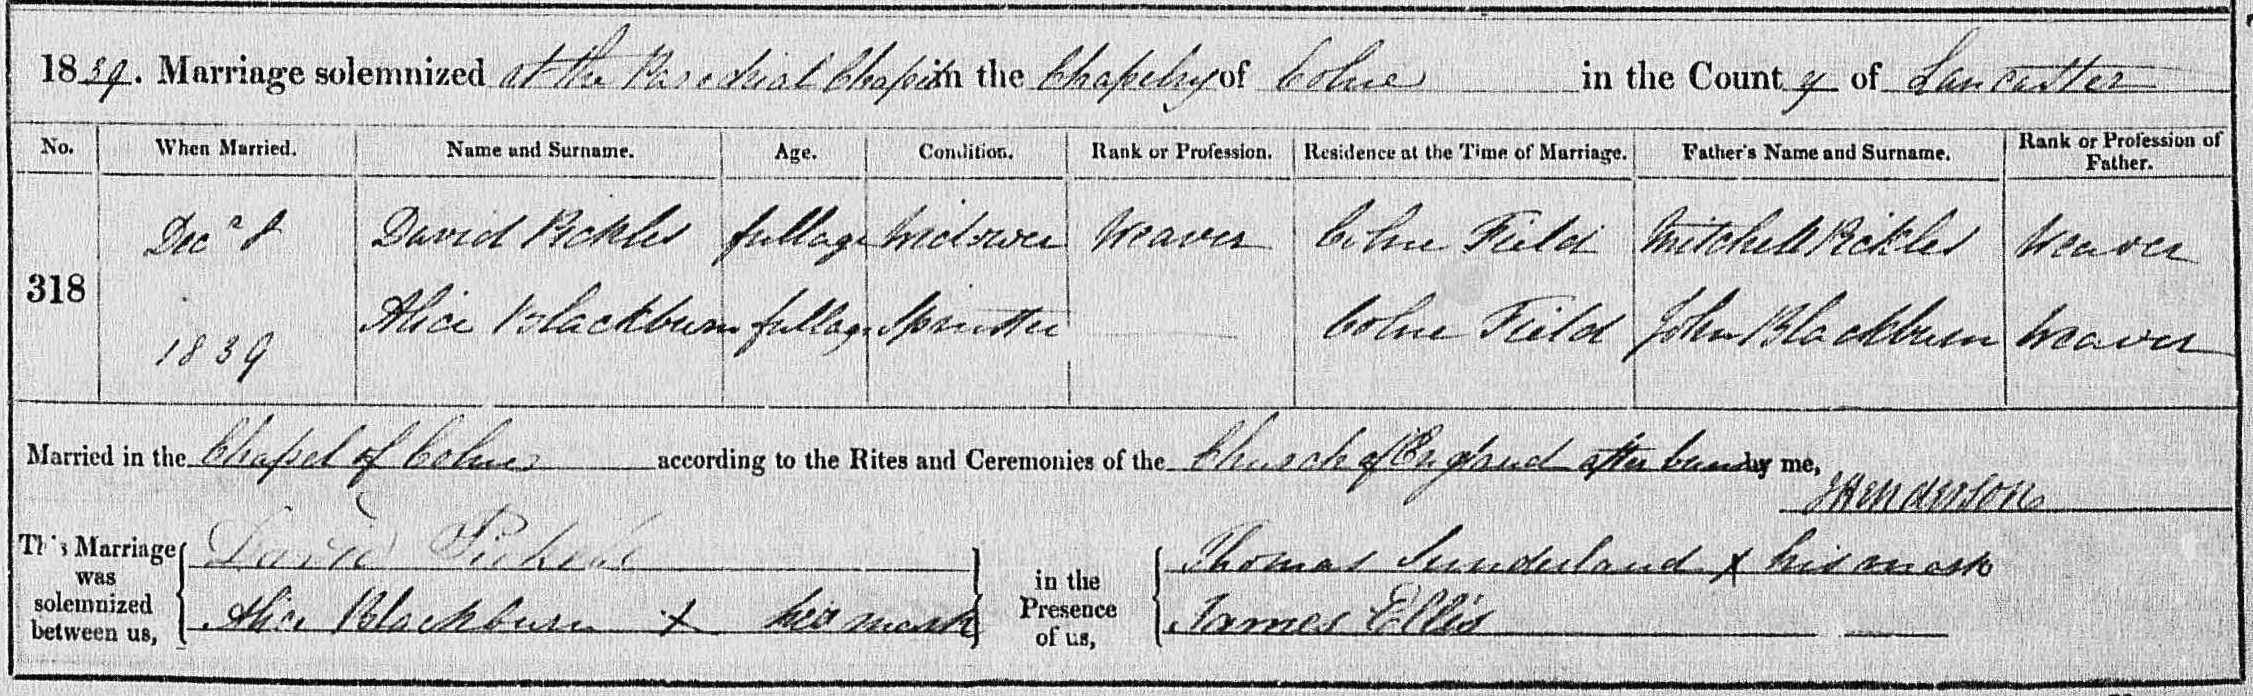 1839. Marriage solemnized at the Parochial Chapel in the Chapelry of Colne in the County of Lancaster
No. When Married. Name and Surname. Age. Condition. Rank or Profession. Residence at the Time of Marriage. Father's Name and Surname. Rank or Profession of Father.
318 Decr 8 David Pickles full age Widower Weaver Colne Field Mitchell Pickles Weaver
1839 Alice Blackburn full age Spinster Colne Field John Blackburn Weaver
Married in the Chapel of Colne according to the Rites and Ceremonies of the Church of England after banns by me,
J Henderson
This Marriage was solemnized between us, David Pickels in the Presence of us, Thomas Sunderland X his mark
Alice Blackburn X her mark James Ellis